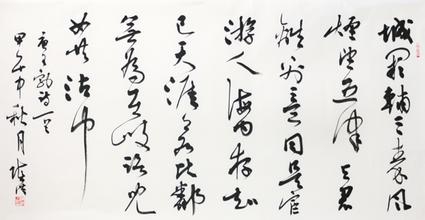 城阙輔三秦风
烟望五津与君
離别意同是宦
游人海内存知
己天涯若比鄰
無為在歧路児
女共沾巾
唐王勃诗一首
甲午中秋月